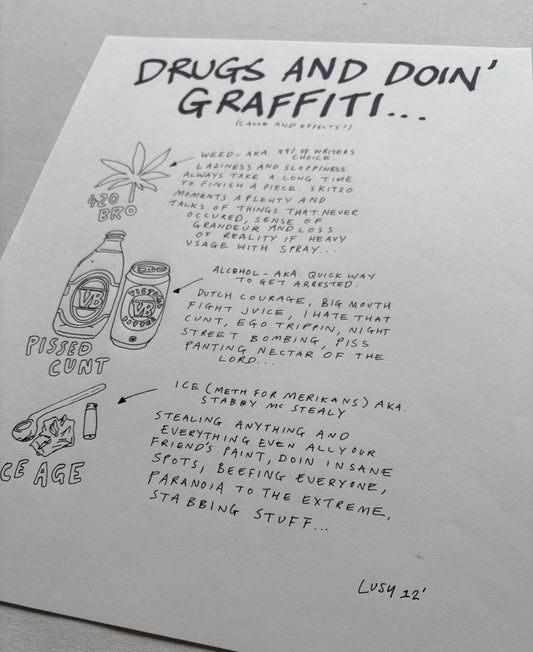 DRUGS AND DOIN'
GRAFFITI...
(CAUSE AND EFFECTS?)
WEED - AKA. 99% OF WRITERS
CHOICE
LAZINESS AND SLOPPINESS.
ALWAYS TAKE A LONG TIME
TO FINISH A PIECE. SKITZO
MOMENTS A PLENTY AND
TALKS OF THINGS THAT NEVER
OCCURED, SENSE OF
GRANDEUR AND LOSS
OF REALITY IF HEAVY
USAGE WITH SPRAY...
420
BRO
ALCOHOL - AKA. QUICK WAY
TO GET ARRESTED.
DUTCH COURAGE, BIG MOUTH
FIGHT JUICE, I HATE THAT
CUNT, EGO TRIPPIN, NIGHT
STREET BOMBING, PISS
PANTING NECTAR OF THE
LORD...
VB
VICTORIA
VB
BITTER
PISSED
CUNT
ICE (METH FOR MERIKANS) AKA.
STABBY MC STEALY
STEALING ANYTHING AND
EVERYTHING EVEN ALL YOUR
FRIEND'S PAINT, DOIN INSANE
SPOTS, BEEFING EVERYONE,
PARANOIA TO THE EXTREME,
STABBING STUFF...
CE AGE
LUSY 12'